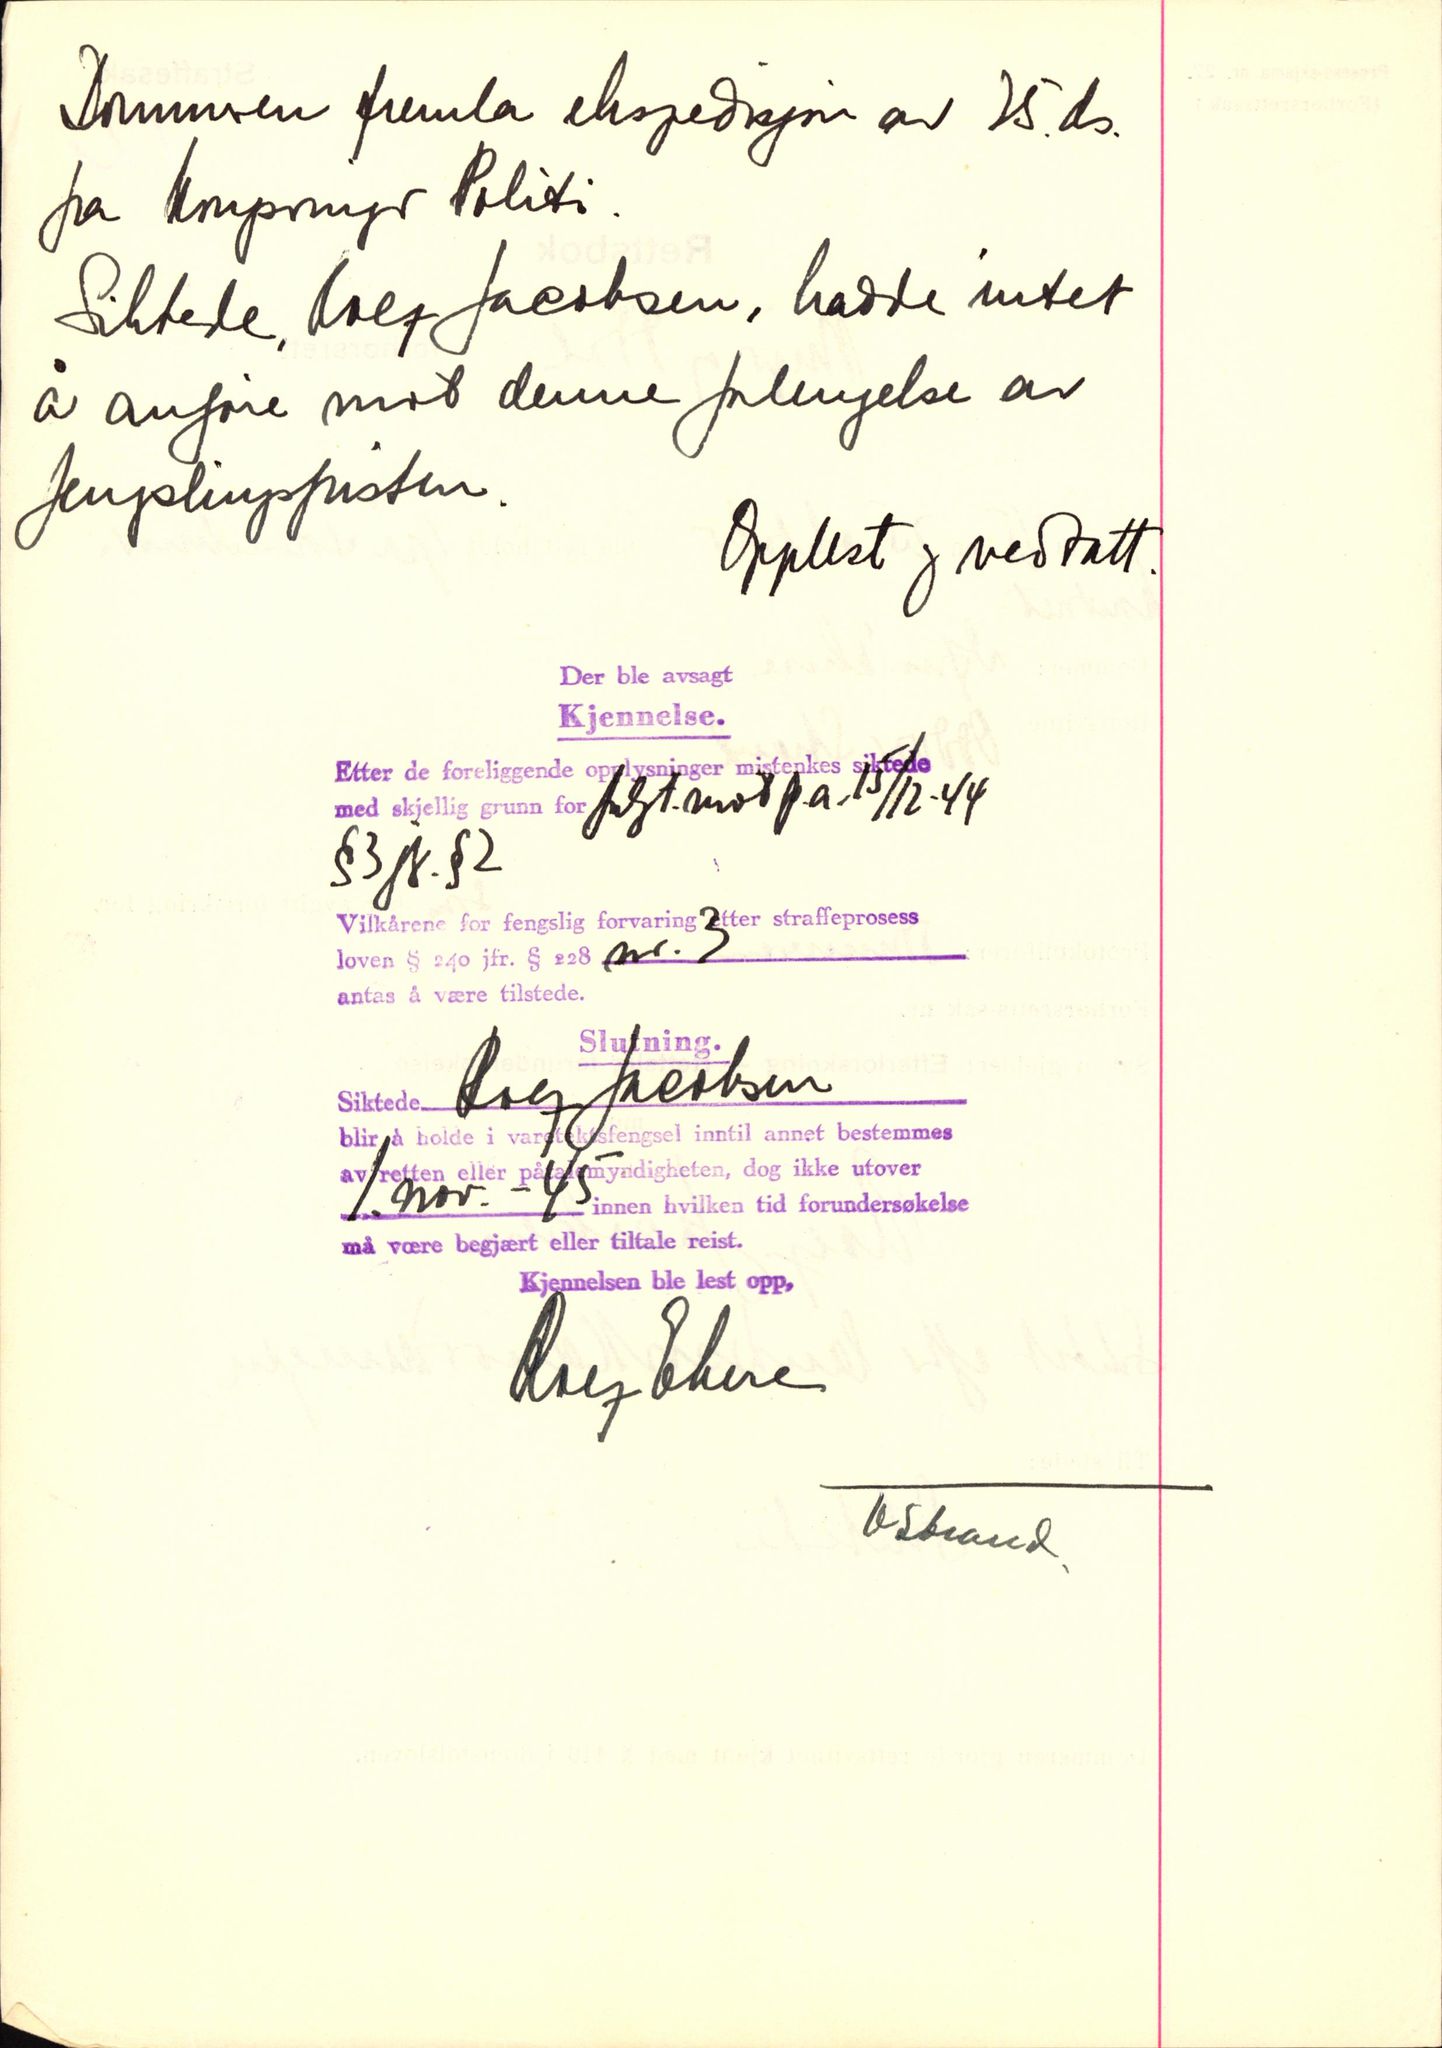 Dommeren fremla ekspedisjon av 25. ds.
fra Kongsvinger Politi.
Siktede, Rolf Jacobsen, hadde intet
å anføre mot denne forlengelse av
fengslingsfristen.
Opplest og vedtatt.
Der ble avsagt
Kjennelse.
Etter de foreliggende opplysninger mistenkes siktede
med skjellig grunn for forbr. mot p.a. 15/12-44
§3 jfr. §2
Vilkårene for fengslig forvaring etter straffeprosess
loven § 240 jfr. § 228 nr. 3
antas å være tilstede.
Slutning.
Siktede Rolf Jacobsen
blir å holde i varetektsfengsel inntil annet bestemmes
av retten eller påtalemyndigheten, dog ikke utover
1. nov. -45 innen hvilken tid forundersøkelse
må være begjært eller tiltale reist.
Kjennelsen ble lest opp,
Rolf
O Strand.